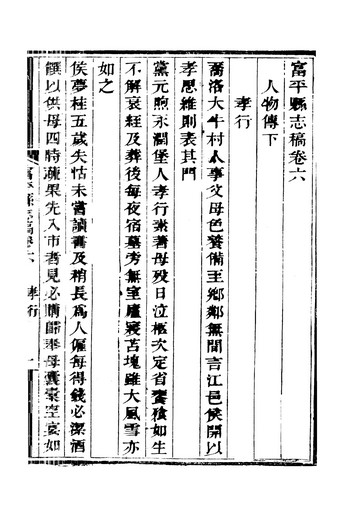 富平縣志稿卷六
人物傳下
孝行
喬洛大牛村人事父母色養備至鄉鄰無間言江邑侯開以
孝思維則表其門
黨元煦永潤堡人孝行素著母歿日泣柩次定省饔飧如生
不解衰絰及葬後每夜宿墓旁無室廬寢苫塊雖大風雪亦
如之
侯夢桂五歲失怙未嘗讀書及稍長為人傭每得錢必潔酒
饌以供母四時蔬果先入市者見必購歸奉母囊橐空宴如
富平縣志稿卷六 孝行 一